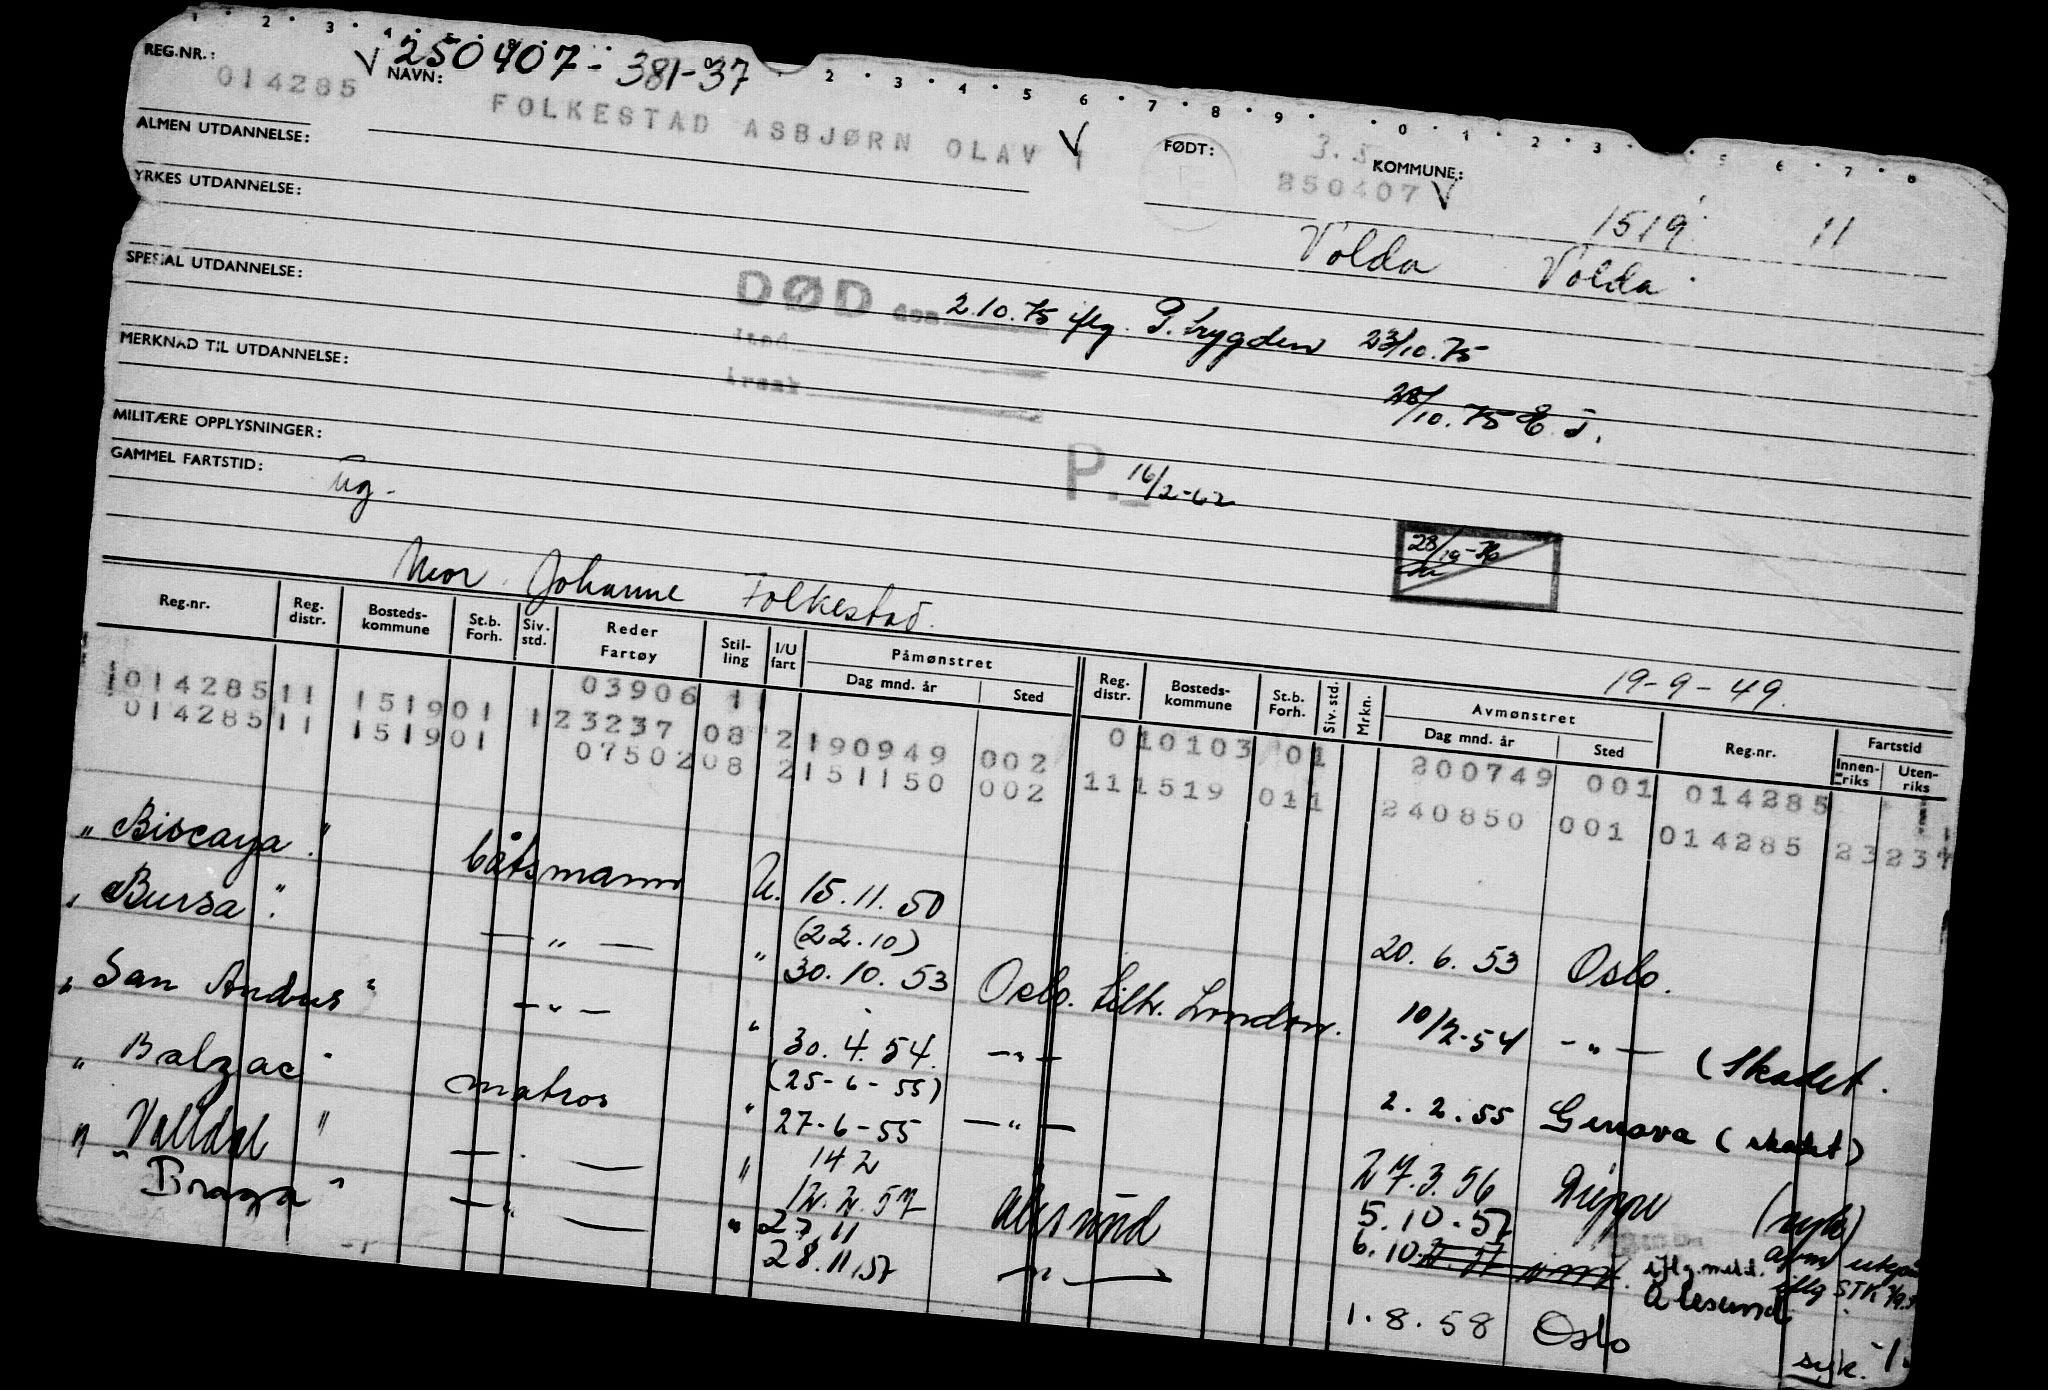 REG.NR.: 014285
NAVN: 250407 - 381-37
FOLKESTAD ASBJØRN OLAV
FØDT: 3.
KOMMUNE:
850407
1519 11
Volda Volda
ALMEN UTDANNELSE:
YRKES UTDANNELSE:
SPESIAL UTDANNELSE:
DØD den 2.10.75 iflg. 23/10.75
Sted
Årsak
28/10.75
MERKNAD TIL UTDANNELSE:
MILITÆRE OPPLYSNINGER:
GAMMEL FARTSTID:
Ug.
P. 16/2-62
Mor Johanne Folkestad.
19-9-49.
Reg.nr. Reg. distr. Bosteds-kommune St.b. Forh. Siv. std. Reder Fartøy Stil-ling I/U fart Påmønstret Dag mnd. år Sted Reg. distr. Bosteds-kommune St.b. Forh. Siv. std. Mrkn. Avmønstret Dag mnd. år Sted Reg.nr. Fartstid Innen-riks Uten-riks
014285 11 1519 01 03906 11 010103 01 200749 001 014285
014285 11 1519 01 1 23237 08 2 190949 002 11 1519 01 1 240850 001 014285 23237
07502 08 2 151150 002
"Biscaya" båtsmann U. 15.11.50 20.6.53 Oslo.
"Bursa" — " — " (22.10) 30.10.53 Oslo. tilh. London. 10/2-54 — " — (Skadet.
"San Andres" — " — " 30.4.54. — " — 2.2.55 Genova (skadet)
"Balzac" matros " (25-6-55) 27-6-55 — " — 27.3.56 Dieppe (syk)
"Valldal" — " — " 14 2 12.2.57 Ålesund 5.10.57
6.10. iflg. meld. Ålesund
"Braga" — " — " 27.11 28.11.57 — " — 1.8.58 Oslo syk.